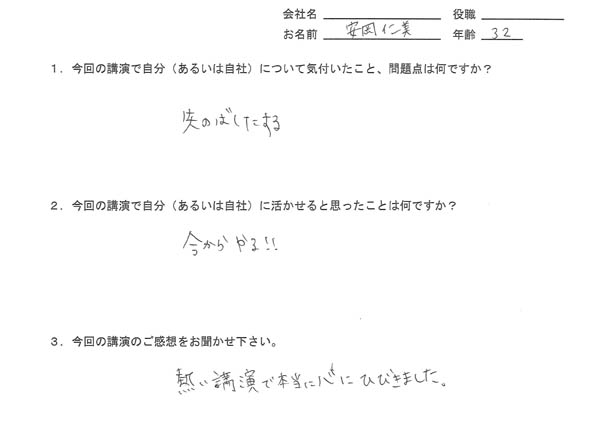 会社名 役職
お名前 安岡仁美 年齢 32
1．今回の講演で自分（あるいは自社）について気付いたこと、問題点は何ですか？
先のばしにする
2．今回の講演で自分（あるいは自社）に活かせると思ったことは何ですか？
今からやる!!
3．今回の講演のご感想をお聞かせ下さい。
熱い講演で本当に心にひびきました。